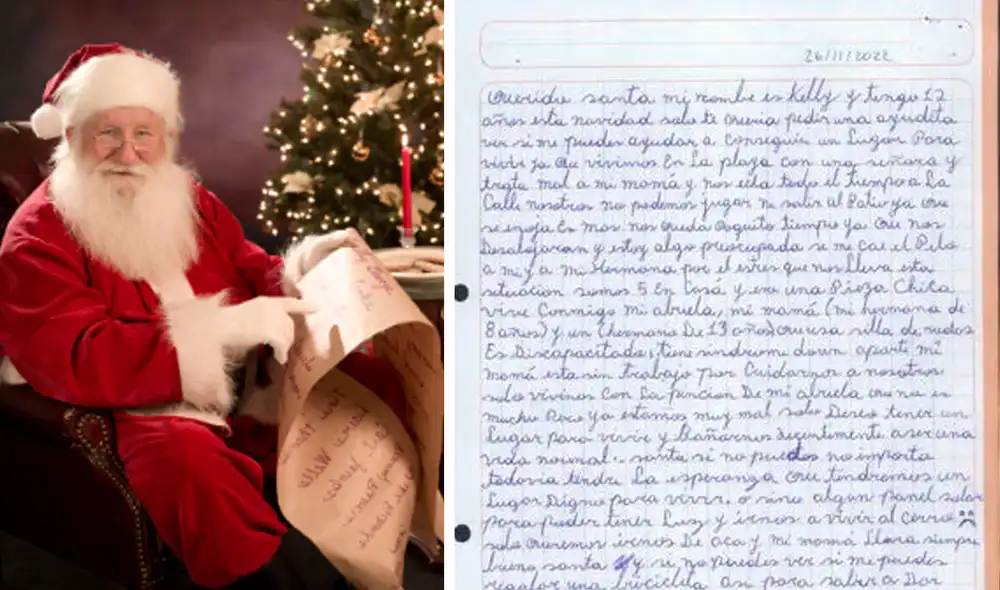 26/11/2022
Querida santa mi nombe es Kelly y tengo 12
años esta navidad solo te queria pedir una ayudita
ver si me puedes ayudar a conseguir un Lugar Para
vivir ya que vivimos En La plaza con una señora y
trata mal a mi mamá y nos echa todo el tiempo a La
Calle nosotros no podemos jugar ni salir al Patio ya que
se enoja Es mas nos queda poquito tiempo ya que nos
Desalojaran y estoy algo preocupada se mi cae el Pelo
a mi y a mi Hermana por el estres que nos lleva esta
situacion somos 5 En casa y en una Pieza Chica
vive Conmigo mi abuela, mi mamá (mi hermana de
8 años) y un (hermana De 13 años) que usa silla de ruedas
Es Discapacitada, tiene sindrome down aparte mi
mamá esta sin trabajo por Cuidarnos a nosotros
solo vivimos con La pencion De mi abuela que no es
mucho Pero ya estamos muy mal solo Deseo tener un
Lugar para vivir y Bañarnos decentemente a ser una
vida normal.. santa si no puedes no importa
todavia tendre La esperanza que tendremos un
Lugar Digno para vivir, o sino algun panel solar
para poder tener Luz y irnos a vivir al cerro
solo queremos irnos De aca y mi mamá llora siempre
bueno santa y si no puedes ver si me puedes
regalar una bicicleta asi para saber a Dar